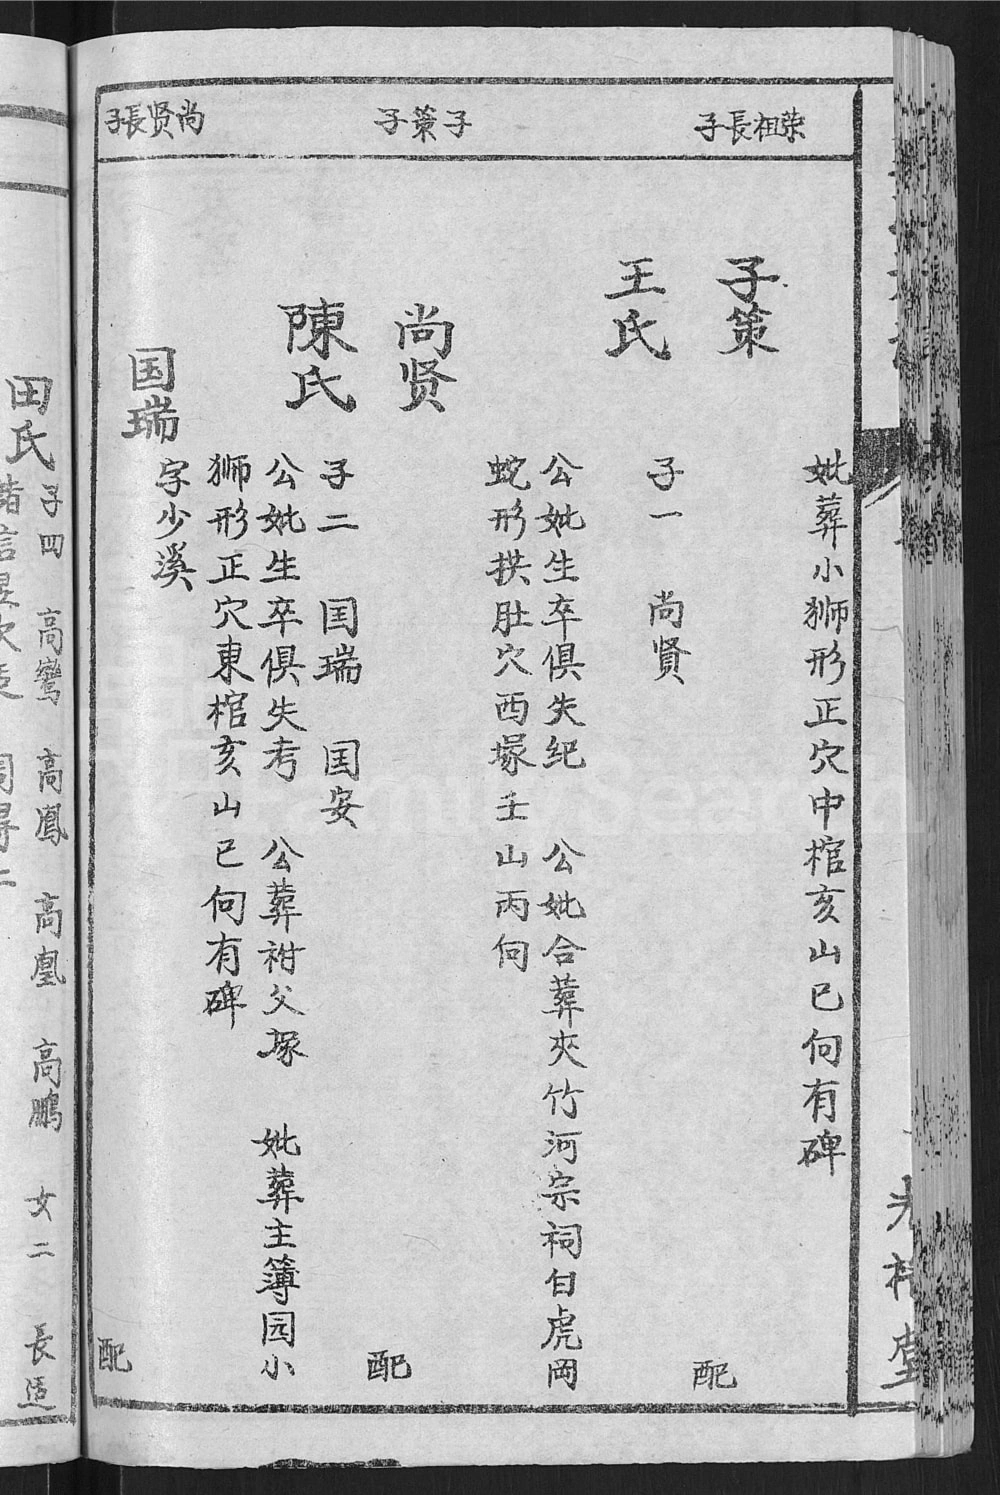 榮祖長子
子策子
尚贤長子
妣葬小狮形正穴中棺亥山已向有碑
子策
配
王氏
子一 尚賢
公妣生卒俱失纪 公妣合葬夾竹河宗祠白虎岡
蛇形拱肚穴西塚壬山丙向
尚贤
配
陳氏
子二 国瑞 国安
公妣生卒俱失考 公葬祔父塚 妣葬主簿园小
狮形正穴東棺亥山已向有碑
国瑞
字少溪
配
田氏
子四 高鸞 高鳳 高凰 高鵬 女二 長适